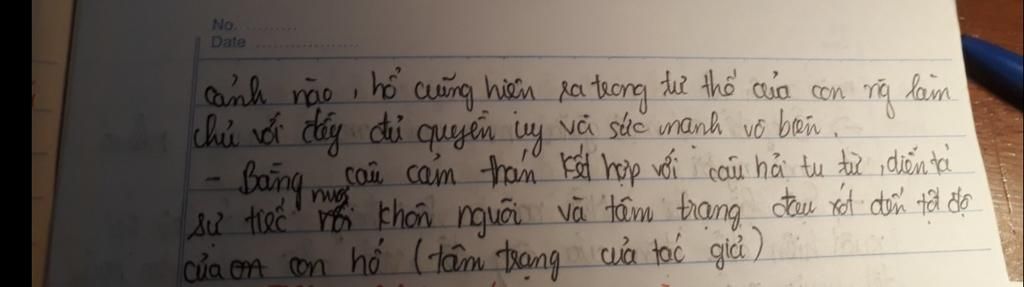 No. ..........
Date ......................
cảnh nào, hổ cũng hiện ra trong tư thế của con ng làm
chủ với đầy đủ quyền uy và sức mạnh vô biên.
- Bằng câu cảm thán kết hợp với câu hỏi tu từ, diễn tả
sự tiếc nuối khôn nguôi và tâm trạng đau xót đến tột độ
của con hổ (tâm trạng của tác giả)